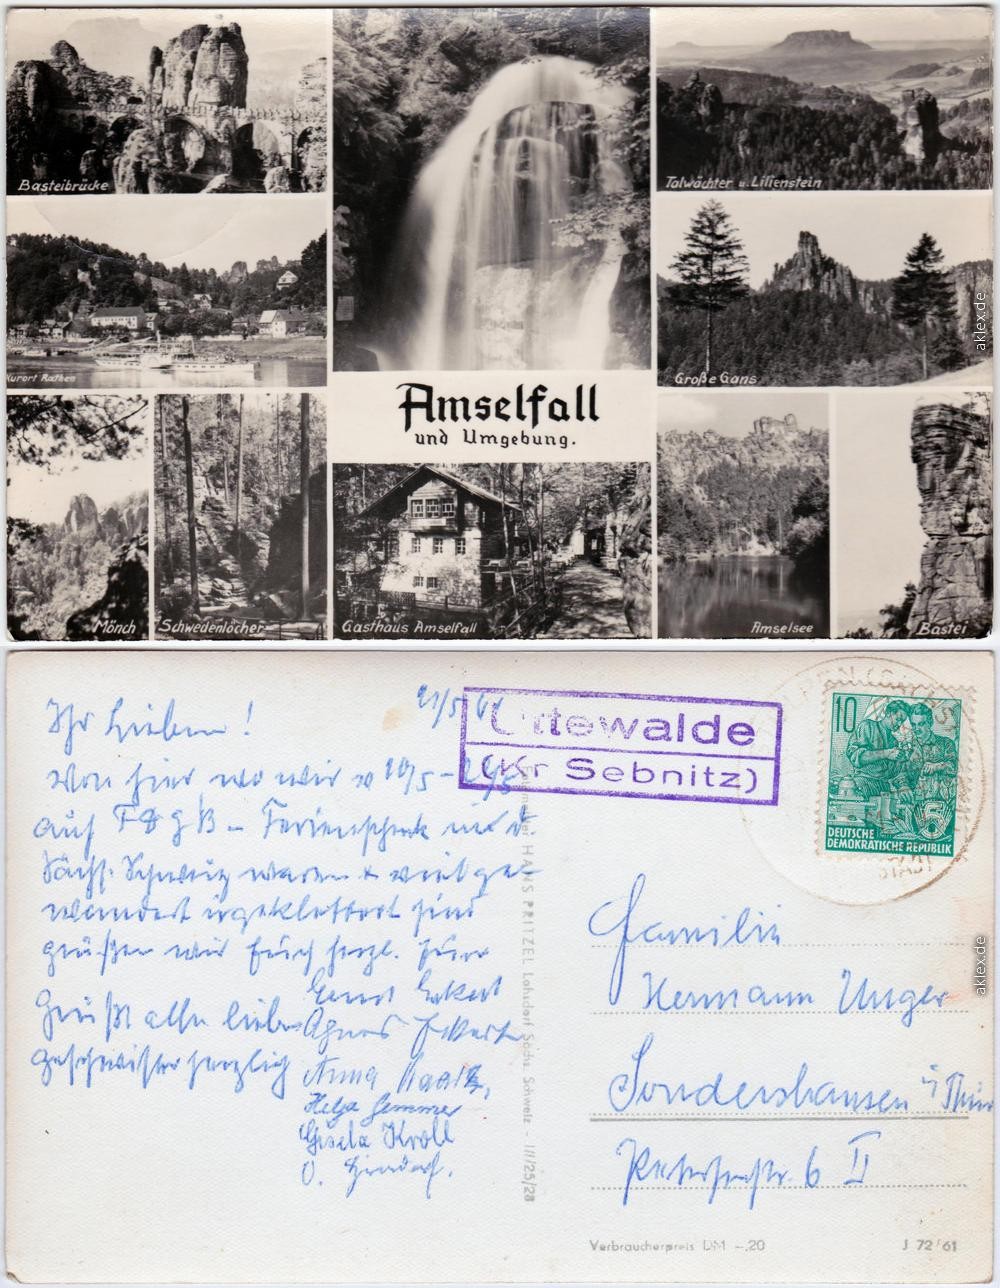 Basteibrücke
Talwächter u. Lilienstein
Kurort Rathen
Große Gans
Amselfall
und Umgebung.
Mönch
Schwedenlöcher
Gasthaus Amselfall
Amselsee
Bastei
aklex.de
Ihr Lieben!
21/5 61
Von hier wo wir v 10/5 –
auf FDGB – Ferienscheck in d.
Sächs. Schweiz waren + viel ge-
wandert u. geklettert sind
grüßen wir Euch herzl. Eure
Ernst Eckert
Grüßt alle lieben
Agnes Eckert
Geschwister herzlich
Anna
Helga
Gisela Kroll
O.
Ottewalde
(Kr Sebnitz)
10
DEUTSCHE
DEMOKRATISCHE REPUBLIK
HANS PRITZEL Lohsdorf Sächs. Schweiz - III/25/28
Familie
Hermann Unger
Sondershausen i/Thür
Petersenstr. 6 II
Verbraucherpreis DM –.20
J 72/61
aklex.de